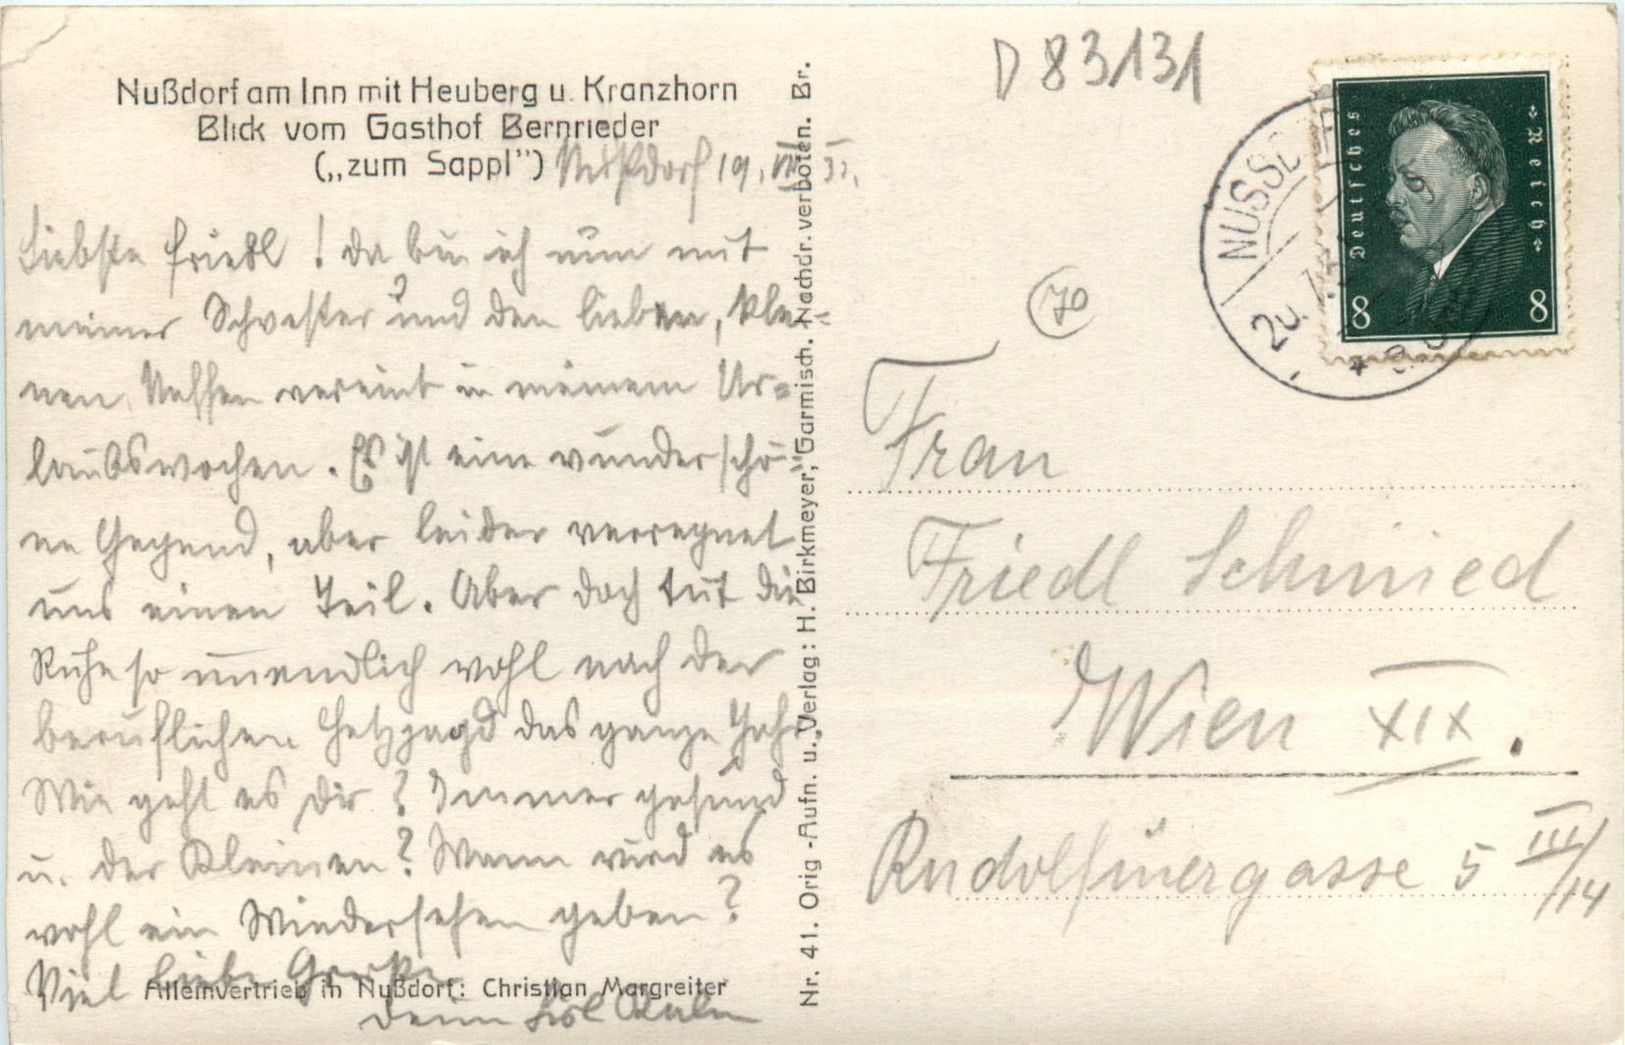 Nußdorf am Inn mit Heuberg u. Kranzhorn
Blick vom Gasthof Bernrieder
(„zum Sappl")
Nußdorf 19. VII. 33.
Liebste Friedl! Da bin ich nun mit
meiner Schwester und den lieben, klei-
nen Neffen vereint in meinem Ur-
laubswochen. Es ist eine wunderschö-
ne Gegend, aber leider verregnet
uns einen Teil. Aber doch tut die
Ruhe so unendlich wohl nach der
beruflichen Hetzjagd das ganze Jahr.
Wie geht es Dir? Immer gesund
u. der Kleinen? Wann wird es
wohl ein Wiedersehen geben?
Viel liebe Grüße
Deine Lisl
Alleinvertrieb in Nußdorf: Christian Margreiter
Nr. 41. Orig.-Aufn. u. Verlag: H. Birkmeyer, Garmisch. Nachdr. verboten. Br.
D 83131
70
Deutsches Reich
8 8
NUSSD
20. 7.
Frau
Friedl Schmied
Wien XIX.
Rudolfinergasse 5 III/14